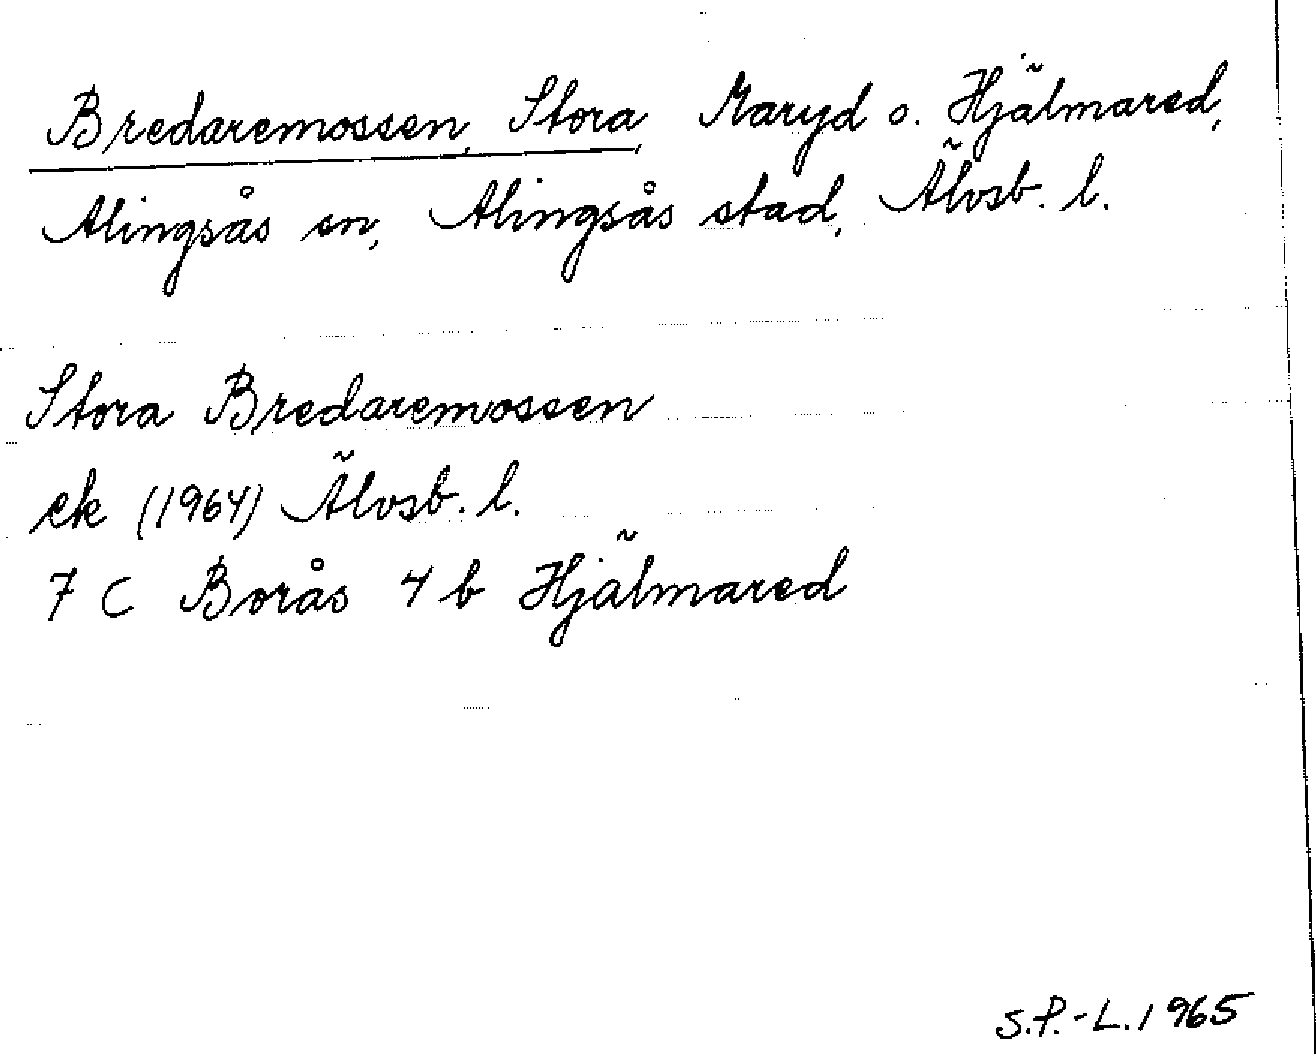 Bredaremossen, Stora, Maryd o. Hjälmared,
Alingsås sn, Alingsås stad, Älvsb. l.
Stora Bredaremossen
ek (1964) Älvsb. l.
7 C Borås 4 b Hjälmared
S.P.-L. 1965